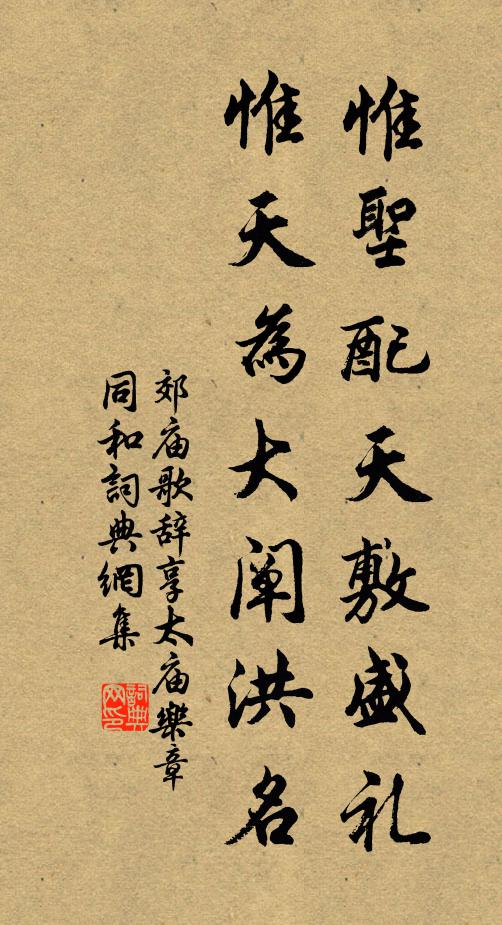 惟聖配天敷盛礼
惟天為大阐洪名
郊庙歌辞享太庙樂章
同和詞典網集
詞典网印